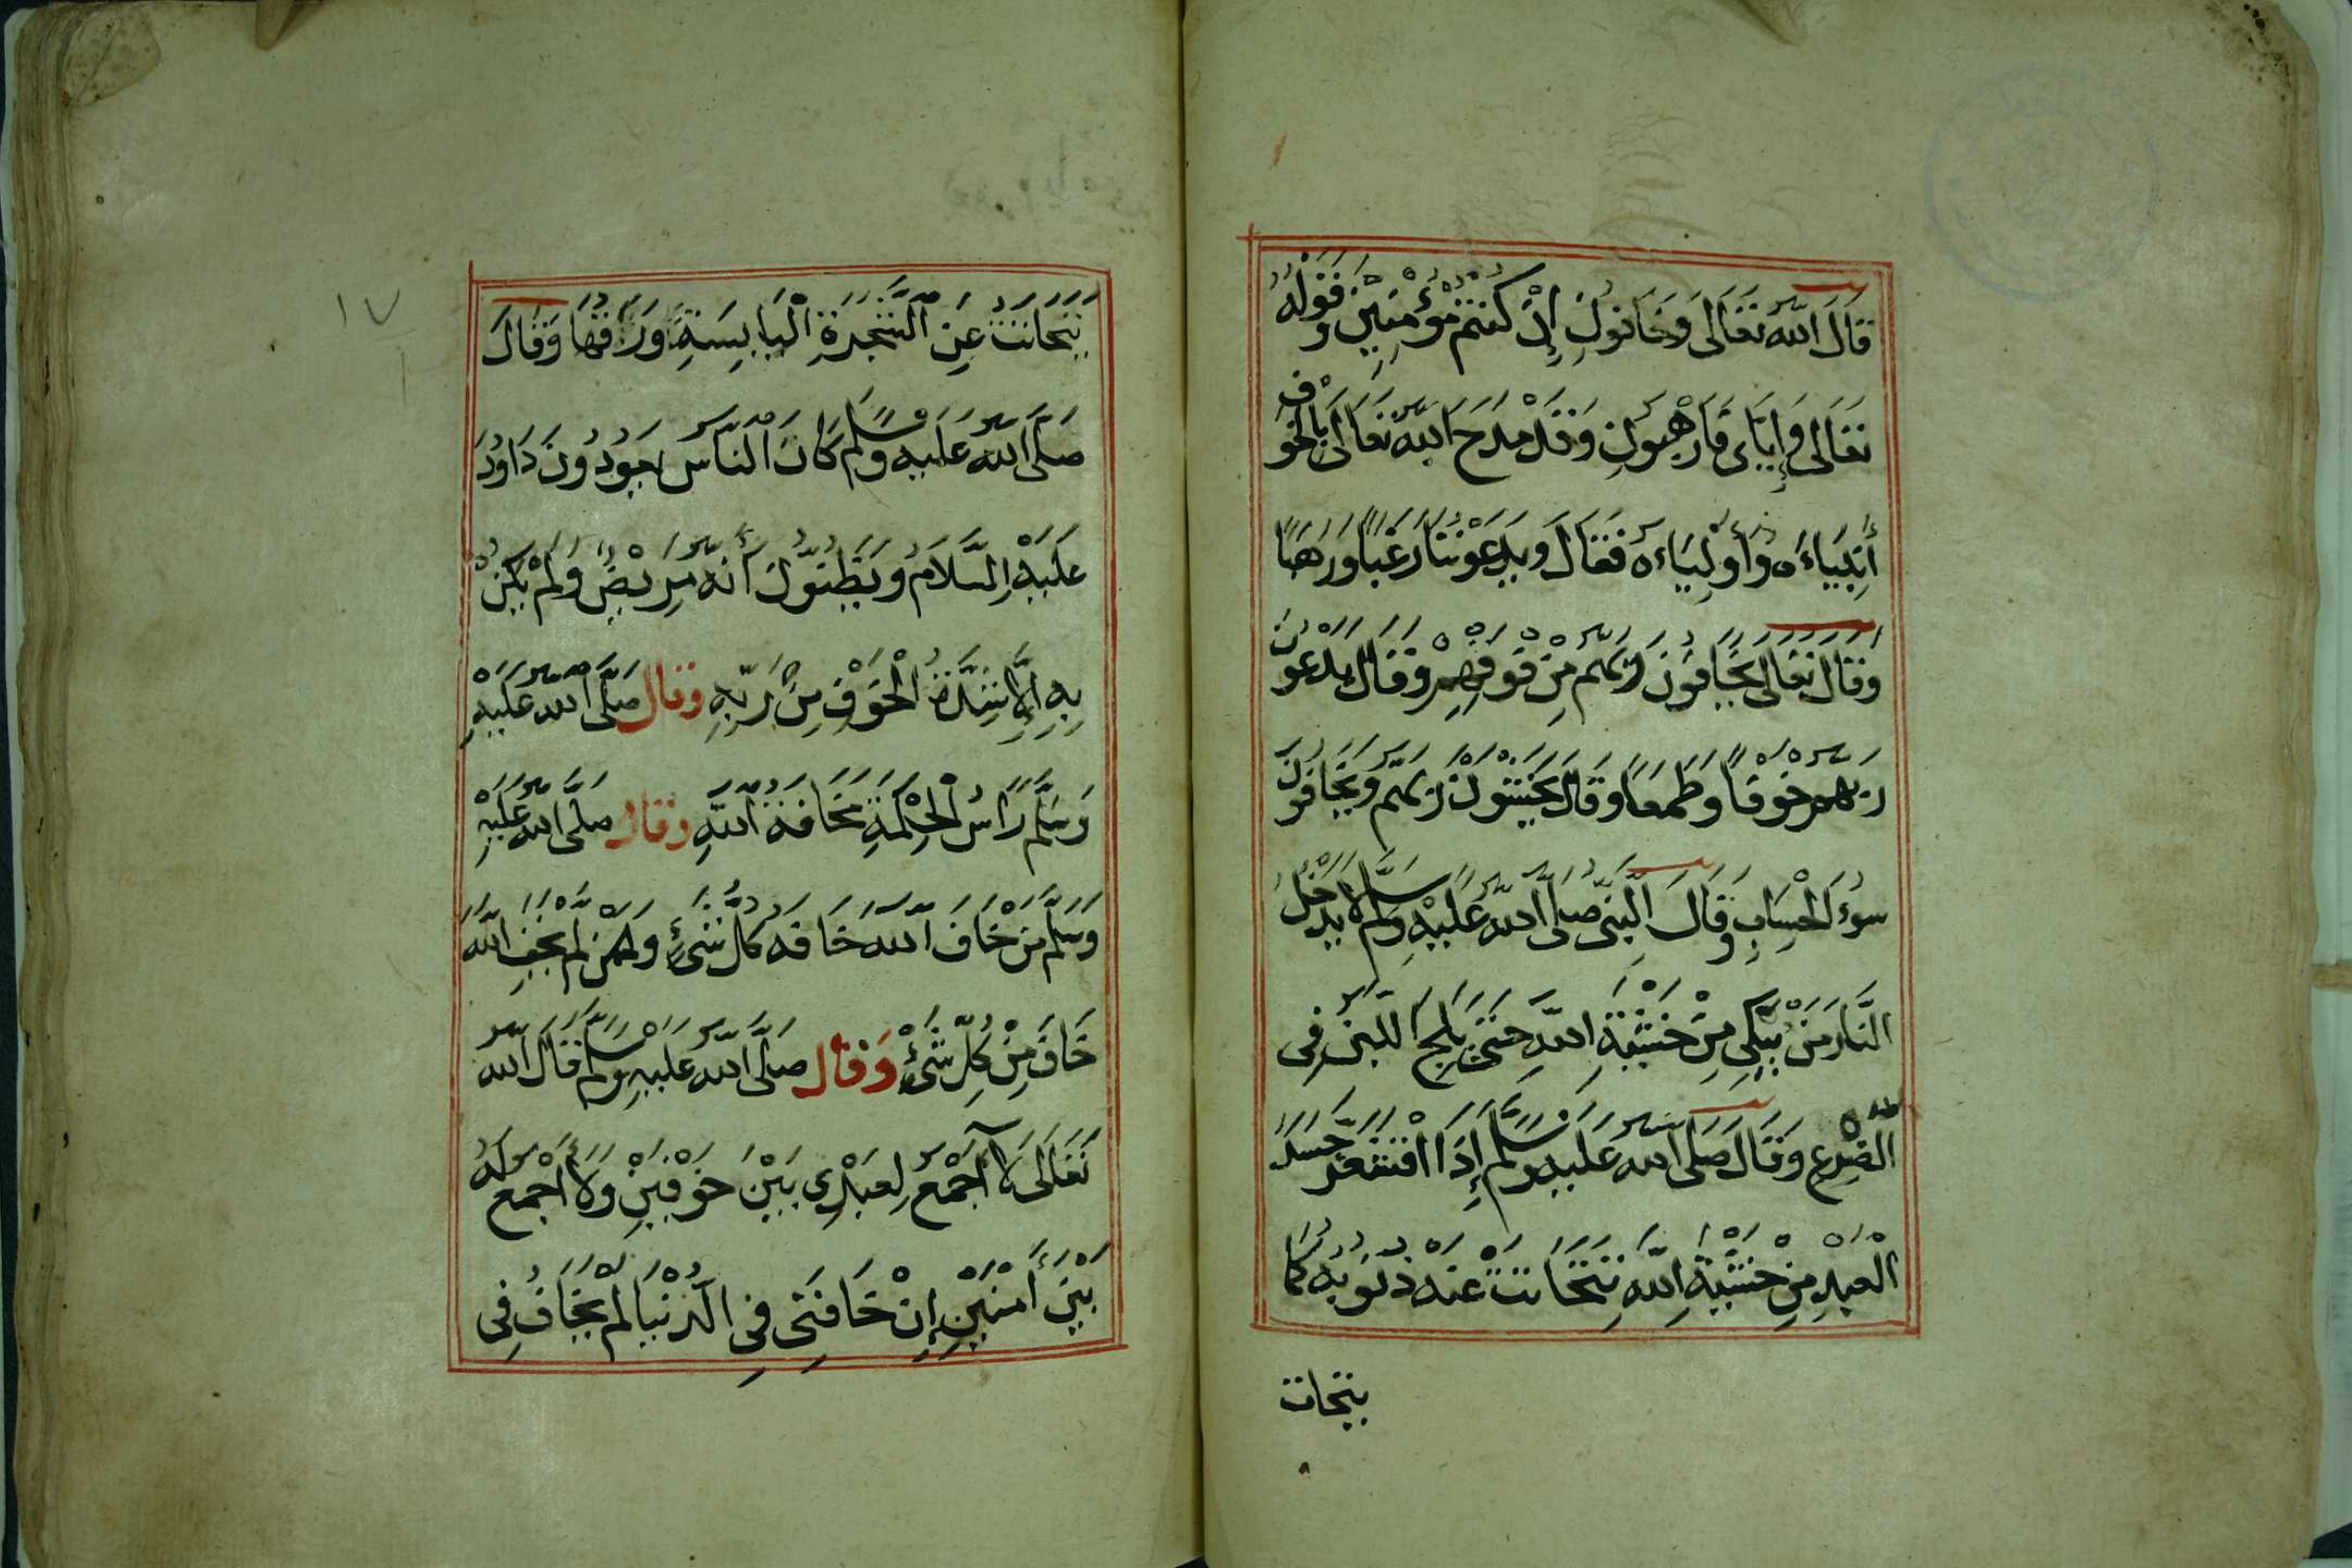 قَالَ اللهُ تَعَالَى وَخَافُونِ إِنْ كُنْتُمْ مُؤْمِنِينَ وَقَوْلُهُ
تَعَالَى وَإِيَّايَ فَارْهَبُونِ وَقَدْ مَدَحَ اللهُ تَعَالَى بِالْخَوْفِ
أَنْبِيَاءَهُ وَأَوْلِيَاءَهُ فَقَالَ وَيَدْعُونَنَا رَغَبًا وَرَهَبًا
وَقَالَ تَعَالَى يَخَافُونَ رَبَّهُمْ مِنْ فَوْقِهِمْ وَقَالَ يَدْعُونَ
رَبَّهُمْ خَوْفًا وَطَمَعًا وَقَالَ يَخْشَوْنَ رَبَّهُمْ وَيَخَافُونَ
سُوءَ الْحِسَابِ وَقَالَ النَّبِيُّ صَلَّى اللهُ عَلَيْهِ وَسَلَّمَ لَا يَدْخُلُ
النَّارَ مَنْ يَبْكِي مِنْ خَشْيَةِ اللهِ حَتَّى يَلِجَ اللَّبَنُ فِي
الضَّرْعِ وَقَالَ صَلَّى اللهُ عَلَيْهِ وَسَلَّمَ إِذَا اقْشَعَرَّ جَسَدُ
الْعَبْدِ مِنْ خَشْيَةِ اللهِ تَتَحَاتَتْ عَنْهُ ذُنُوبُهُ كَمَا
يتحات
١٧
يَتَحَاتَتُ عَنِ الشَّجَرَةِ الْيَابِسَةِ وَرَقُهَا وَقَالَ
صَلَّى اللهُ عَلَيْهِ وَسَلَّمَ كَانَ النَّاسُ يَعُودُونَ دَاوُدَ
عَلَيْهِ السَّلَامُ وَيَظُنُّونَ أَنَّهُ مَرِيضٌ وَلَمْ يَكُنْ
بِهِ إِلَّا شِدَّةُ الْخَوْفِ مِنْ رَبِّهِ وَقَالَ صَلَّى اللهُ عَلَيْهِ
وَسَلَّمَ رَأْسُ الْحِكْمَةِ مَخَافَةُ اللهِ وَقَالَ صَلَّى اللهُ عَلَيْهِ
وَسَلَّمَ مَنْ خَافَ اللهَ خَافَهُ كُلُّ شَيْءٍ وَمَنْ لَمْ يَخَفِ اللهَ
خَافَ مِنْ كُلِّ شَيْءٍ وَقَالَ صَلَّى اللهُ عَلَيْهِ وَسَلَّمَ قَالَ اللهُ
تَعَالَى لَا أَجْمَعُ لِعَبْدِي بَيْنَ خَوْفَيْنِ وَلَا أَجْمَعُ لَهُ
بَيْنَ أَمْنَيْنِ إِنْ خَافَنِي فِي الدُّنْيَا لَمْ يَخَافُ فِي